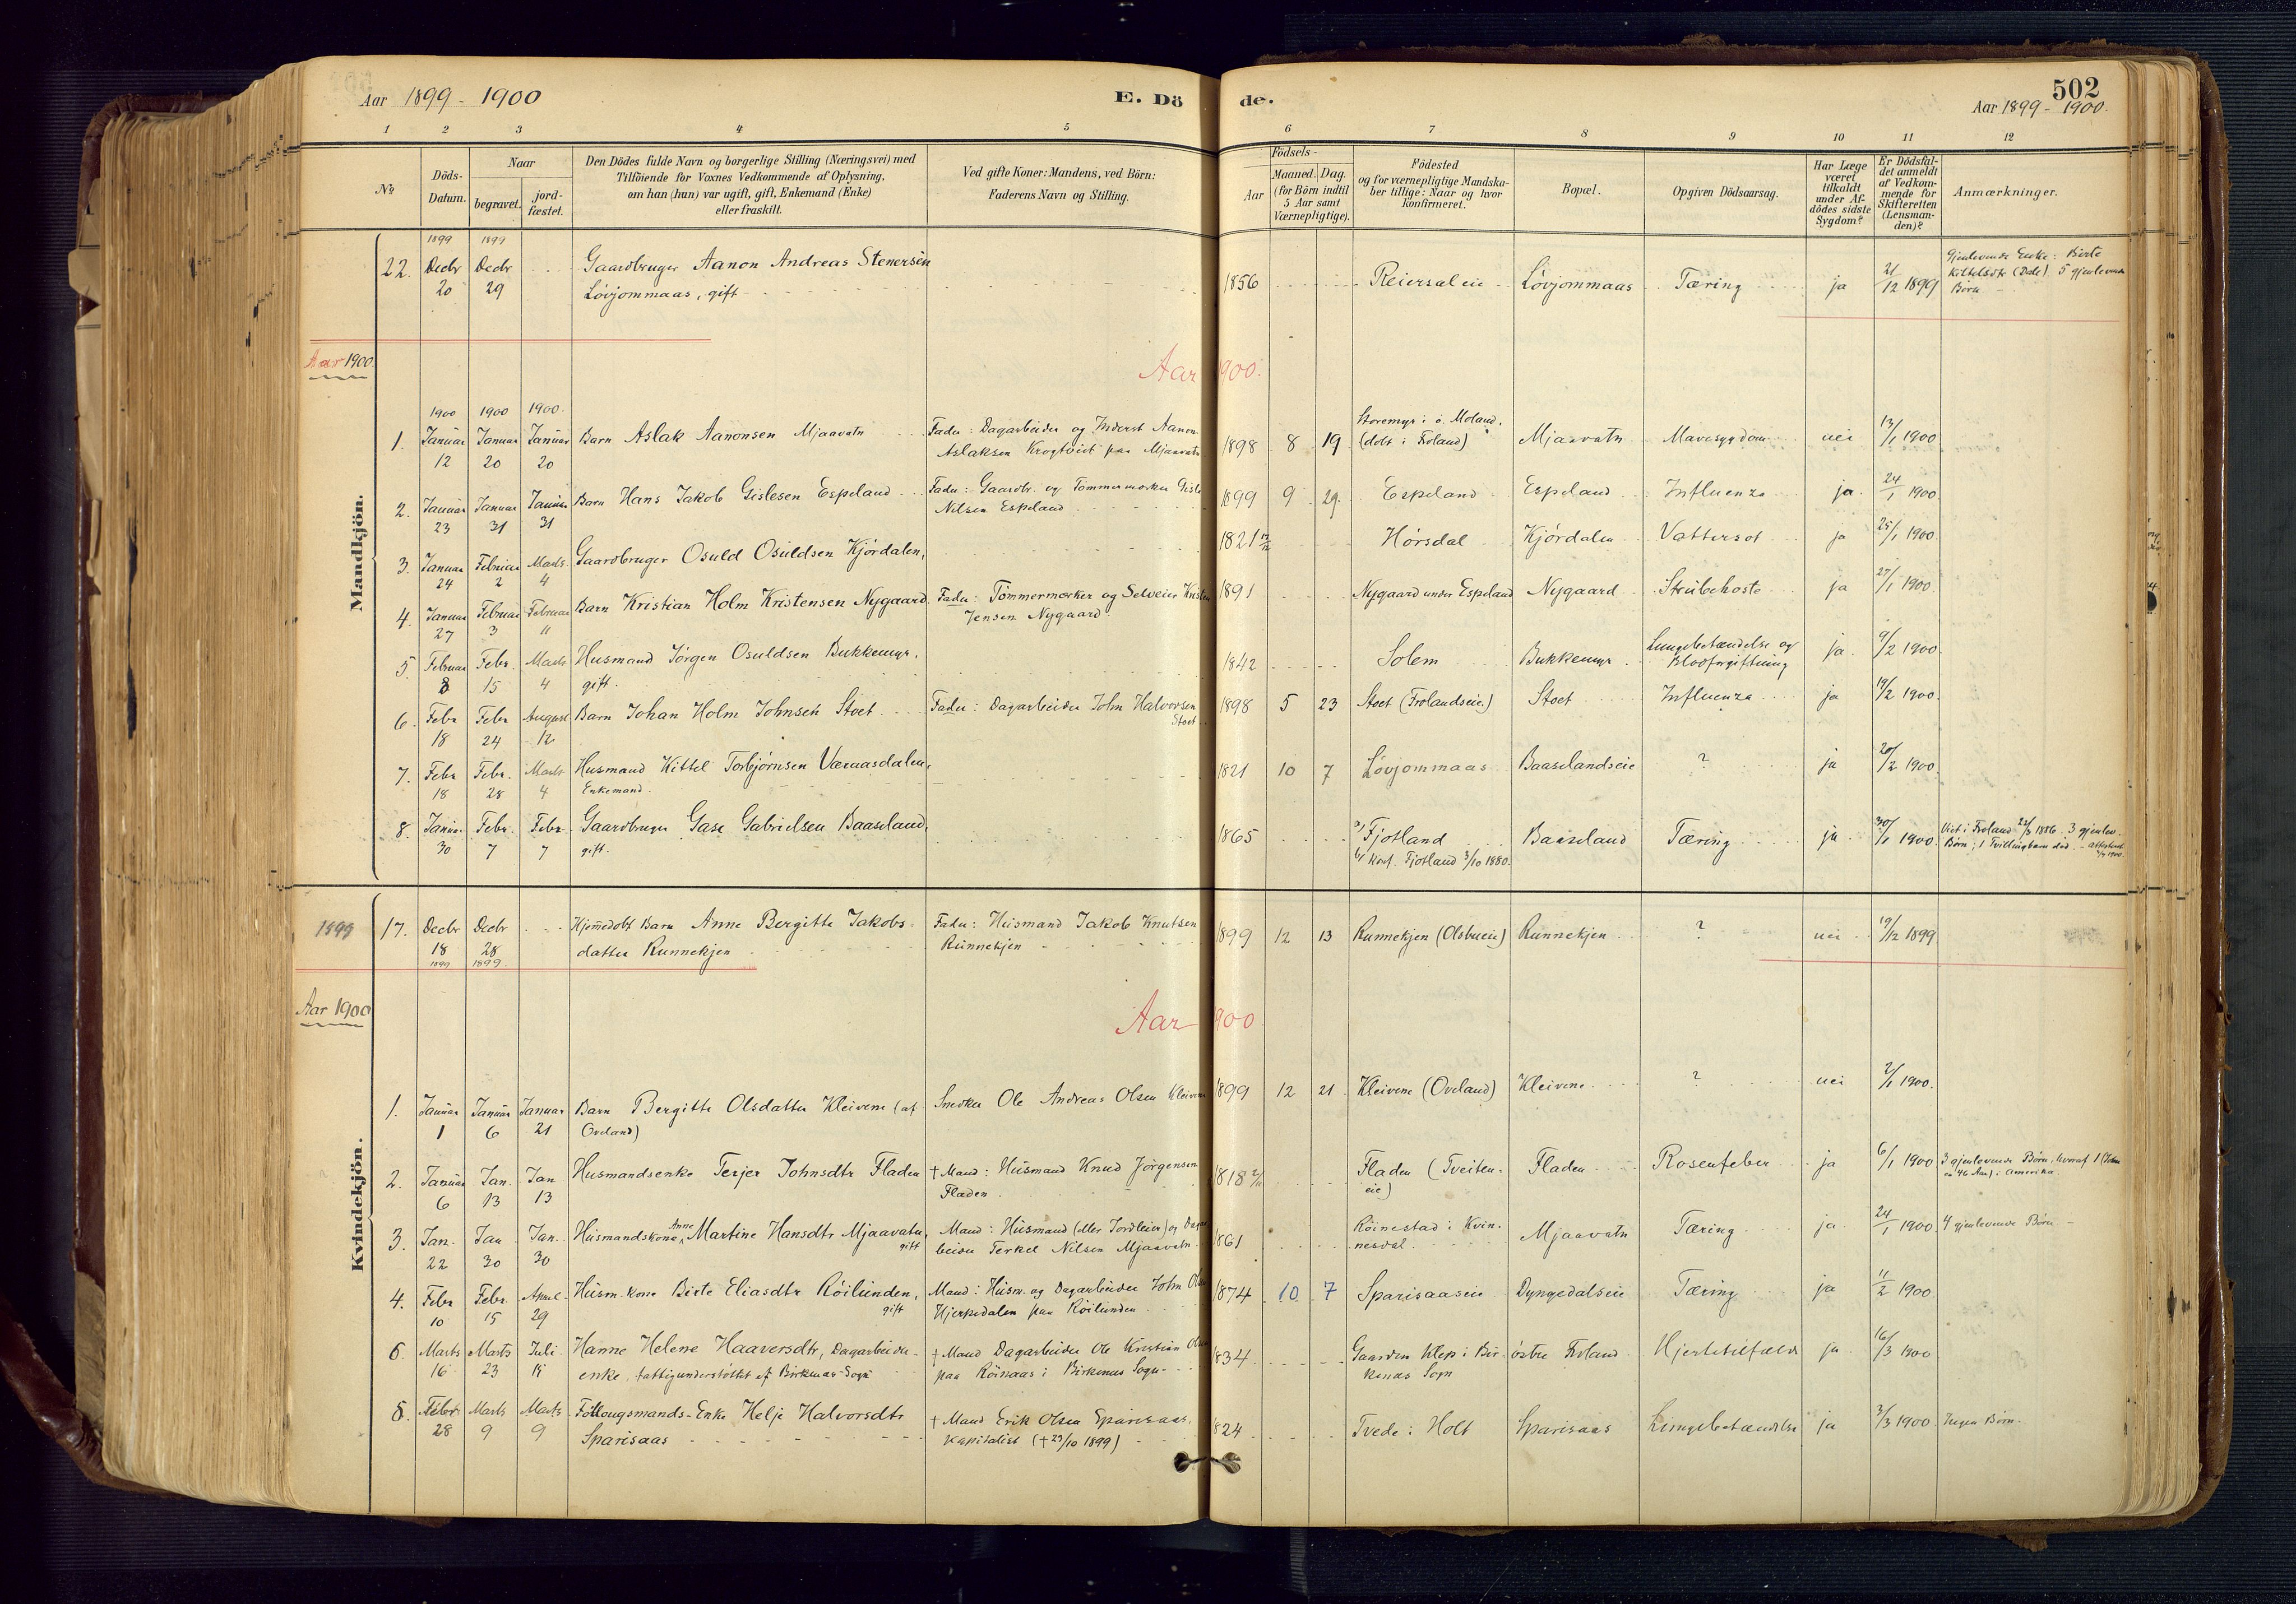 502
Aar 1899 - 1900
E. Dö
de.
Aar 1899 - 1900.
1 2 3 4 5 6 7 8 9 10 11 12
No
Döds-Datum.
Naar
begravet.
jordfæstet.
Den Dödes fulde Navn og borgerlige Stilling (Næringsvei) med
Tilföiende for Voxnes Vedkommende af Oplysning,
om han (hun) var ugift, gift, Enkemand (Enke)
eller fraskilt.
Ved gifte Koner: Mandens, ved Börn:
Faderens Navn og Stilling.
Födsels-
Aar
Maaned. Dag.
(for Börn indtil
5 Aar samt
Værnepligtige).
Födested
og for værnepligtige Mandska-
ber tillige: Naar og hvor
konfirmeret.
Bopæl.
Opgiven Dödsaarsag.
Har Læge
været
tilkaldt
under Af-
dödes sidste
Sygdom?
Er Dödsfal-
det anmeldt
af Vedkom-
mende for
Skifteretten
(Lensman-
den)?
Anmærkninger.
Mandkjön.
1899 1899
22. Decbr 20 Decbr 29 Gaardbruger Aanon Andreas Stenersen
Løvjommaas, gift
1856 Reiersaleie Løvjommaas Tæring ja 21/12 1899 Gjenlevende Enke: Birte
Kittelsdtr (Dale) 5 gjenlevende
Börn
Aar 1900.
Aar 1900.
1900 1900 1900.
1. Januar 12 Januar 20 Januar 20 Barn Aslak Aanonsen Mjaavatn Fader: Dagarbeider og Inderst Aanon
Aslaksen Krogtveit paa Mjaavatn
1898 8 19 Storemyr i ö. Moland.
(døbt i Froland) Mjaavatn Mavesygdom nei 13/1 1900
2. Januar 23 Januar 31 Januar 31 Barn Hans Jakob Gislesen Espeland Fader: Gaardbr. og Tømmermerker Gisle
Nilsen Espeland
1899 9 29. Espeland Espeland Influenza ja 24/1 1900
3. Januar 24 Februar 2 Marts 4 Gaardbruger Osuld Osuldsen Kjørdalen,
1821 Hørsdal Kjørdalen Vattersot ja 25/1 1900.
4. Januar 27 Februar 3 Februar 11 Barn Kristian Holm Kristensen Nygaard Fader: Tømmermerker og Selveier Kristen
Jensen Nygaard
1891 Nygaard under Espeland Nygaard Strubehoste ja 27/1 1900.
5. Februar 8 Febr. 15 Marts 4 Husmand Jørgen Osuldsen Bukkemyr.
gift.
1842 Solem Bukkemyr Lungebetændelse og
Blodforgiftning ja. 9/2 1900.
6. Febr 18 Febr 24 August 12 Barn Johan Holm Johnsen Stoet Fader: Dagarbeider John Halvorsen
Stoet
1898 5 23 Stoet (Frolandseie) Stoet Influenza ja 19/2 1900.
7. Febr 18 Febr. 28 Marts 4 Husmand Kittel Torbjørnsen Væraasdalen,
Enkemand.
1821 10 7 Løvjommaas Baaselandseie ? ja 20/2 1900.
8. Januar 30 Febr. 7 Febr 7 Gaardbruger Gase Gabrielsen Baaseland,
gift.
1865 a/ Fjotland
b/ Konf. Fjotland 3/10 1880. Baaseland Tæring ja 30/1 1900. Viet i Froland 22/3 1886. 3 gjenlev.
Börn; 1 Tvillingbarn død.
Kvindekjön.
1899 17. Decbr 18 1899 Decbr 28 1899. Hjemmedøbt Barn Anne Bergitte Jakobs-
datter Runnekjen Fader: Husmand Jakob Knutsen
Runnekjen
1899 12 13 Runnekjen (Olsbueie) Runnekjen ? nei 19/12 1899
Aar 1900
Aar 1900
1. Januar 1 Januar 6 Januar 21 Barn Bergitte Olsdatter Kleivene (af
Oveland) Snedker Ole Andreas Olsen Kleivene
1899 12 21 Kleivene (Oveland) Kleivene ? nei 2/1 1900.
2. Januar 6 Jan. 13 Jan 13 Husmandsenke Terjer Johnsdtr Fladen † Mand: Husmand Knud Jörgensen
Fladen
1818 Fladen (Tveiten-
eie) Fladen Rosenfeber ja 6/1 1900 3 gjenlevende Börn, hvoraf 1 (John
46 Aar) i Amerika
3. Jan. 22 Jan 30 Jan. 30 Husmandskone Anne Martine Hansdtr Mjaavatn,
gift Mand: Husmand (eller Jordleier) og Dagar
beider Terkel Nilsen Mjaavatn
1861 Röinestad i Kvin-
nesdal. Mjaavatn Tæring ja 24/1 1900 4 gjenlevende Börn
4. Febr 10 Febr. 15 April 29 Husm.kone Birte Eliasdtr Röilunden,
gift Mand: Husm. og Dagarbeider John Olsen
Hjerpedalen paa Röilunden
1874 10 7 Sparisaaseie Dyngedalseie Tæring ja 11/2 1900
6. Marts 16 Marts 23 Juli Hanne Helene Haaversdtr, Dagarbeider-
enke, fattigunderstøttet af Birkenæs Sogn † Mand Dagarbeider Ole Kristian Olsen
paa Röinaas i Birkenæs Sogn
1834 Gaarden Klep i Bir-
kenæs Sogn østre Froland Hjertetilfælde ja 16/3 1900
5. Febr 28 Marts 9 Marts 9 Föllougsmands-Enke Helje Halvorsdtr
Sparisaas † Mand Erik Olsen Sparisaas,
Kapitalist († 23/10 1899)
1824 Tvede i Holt Sparisaas Lungebetændelse ja 3/3 1900 Ingen Börn.